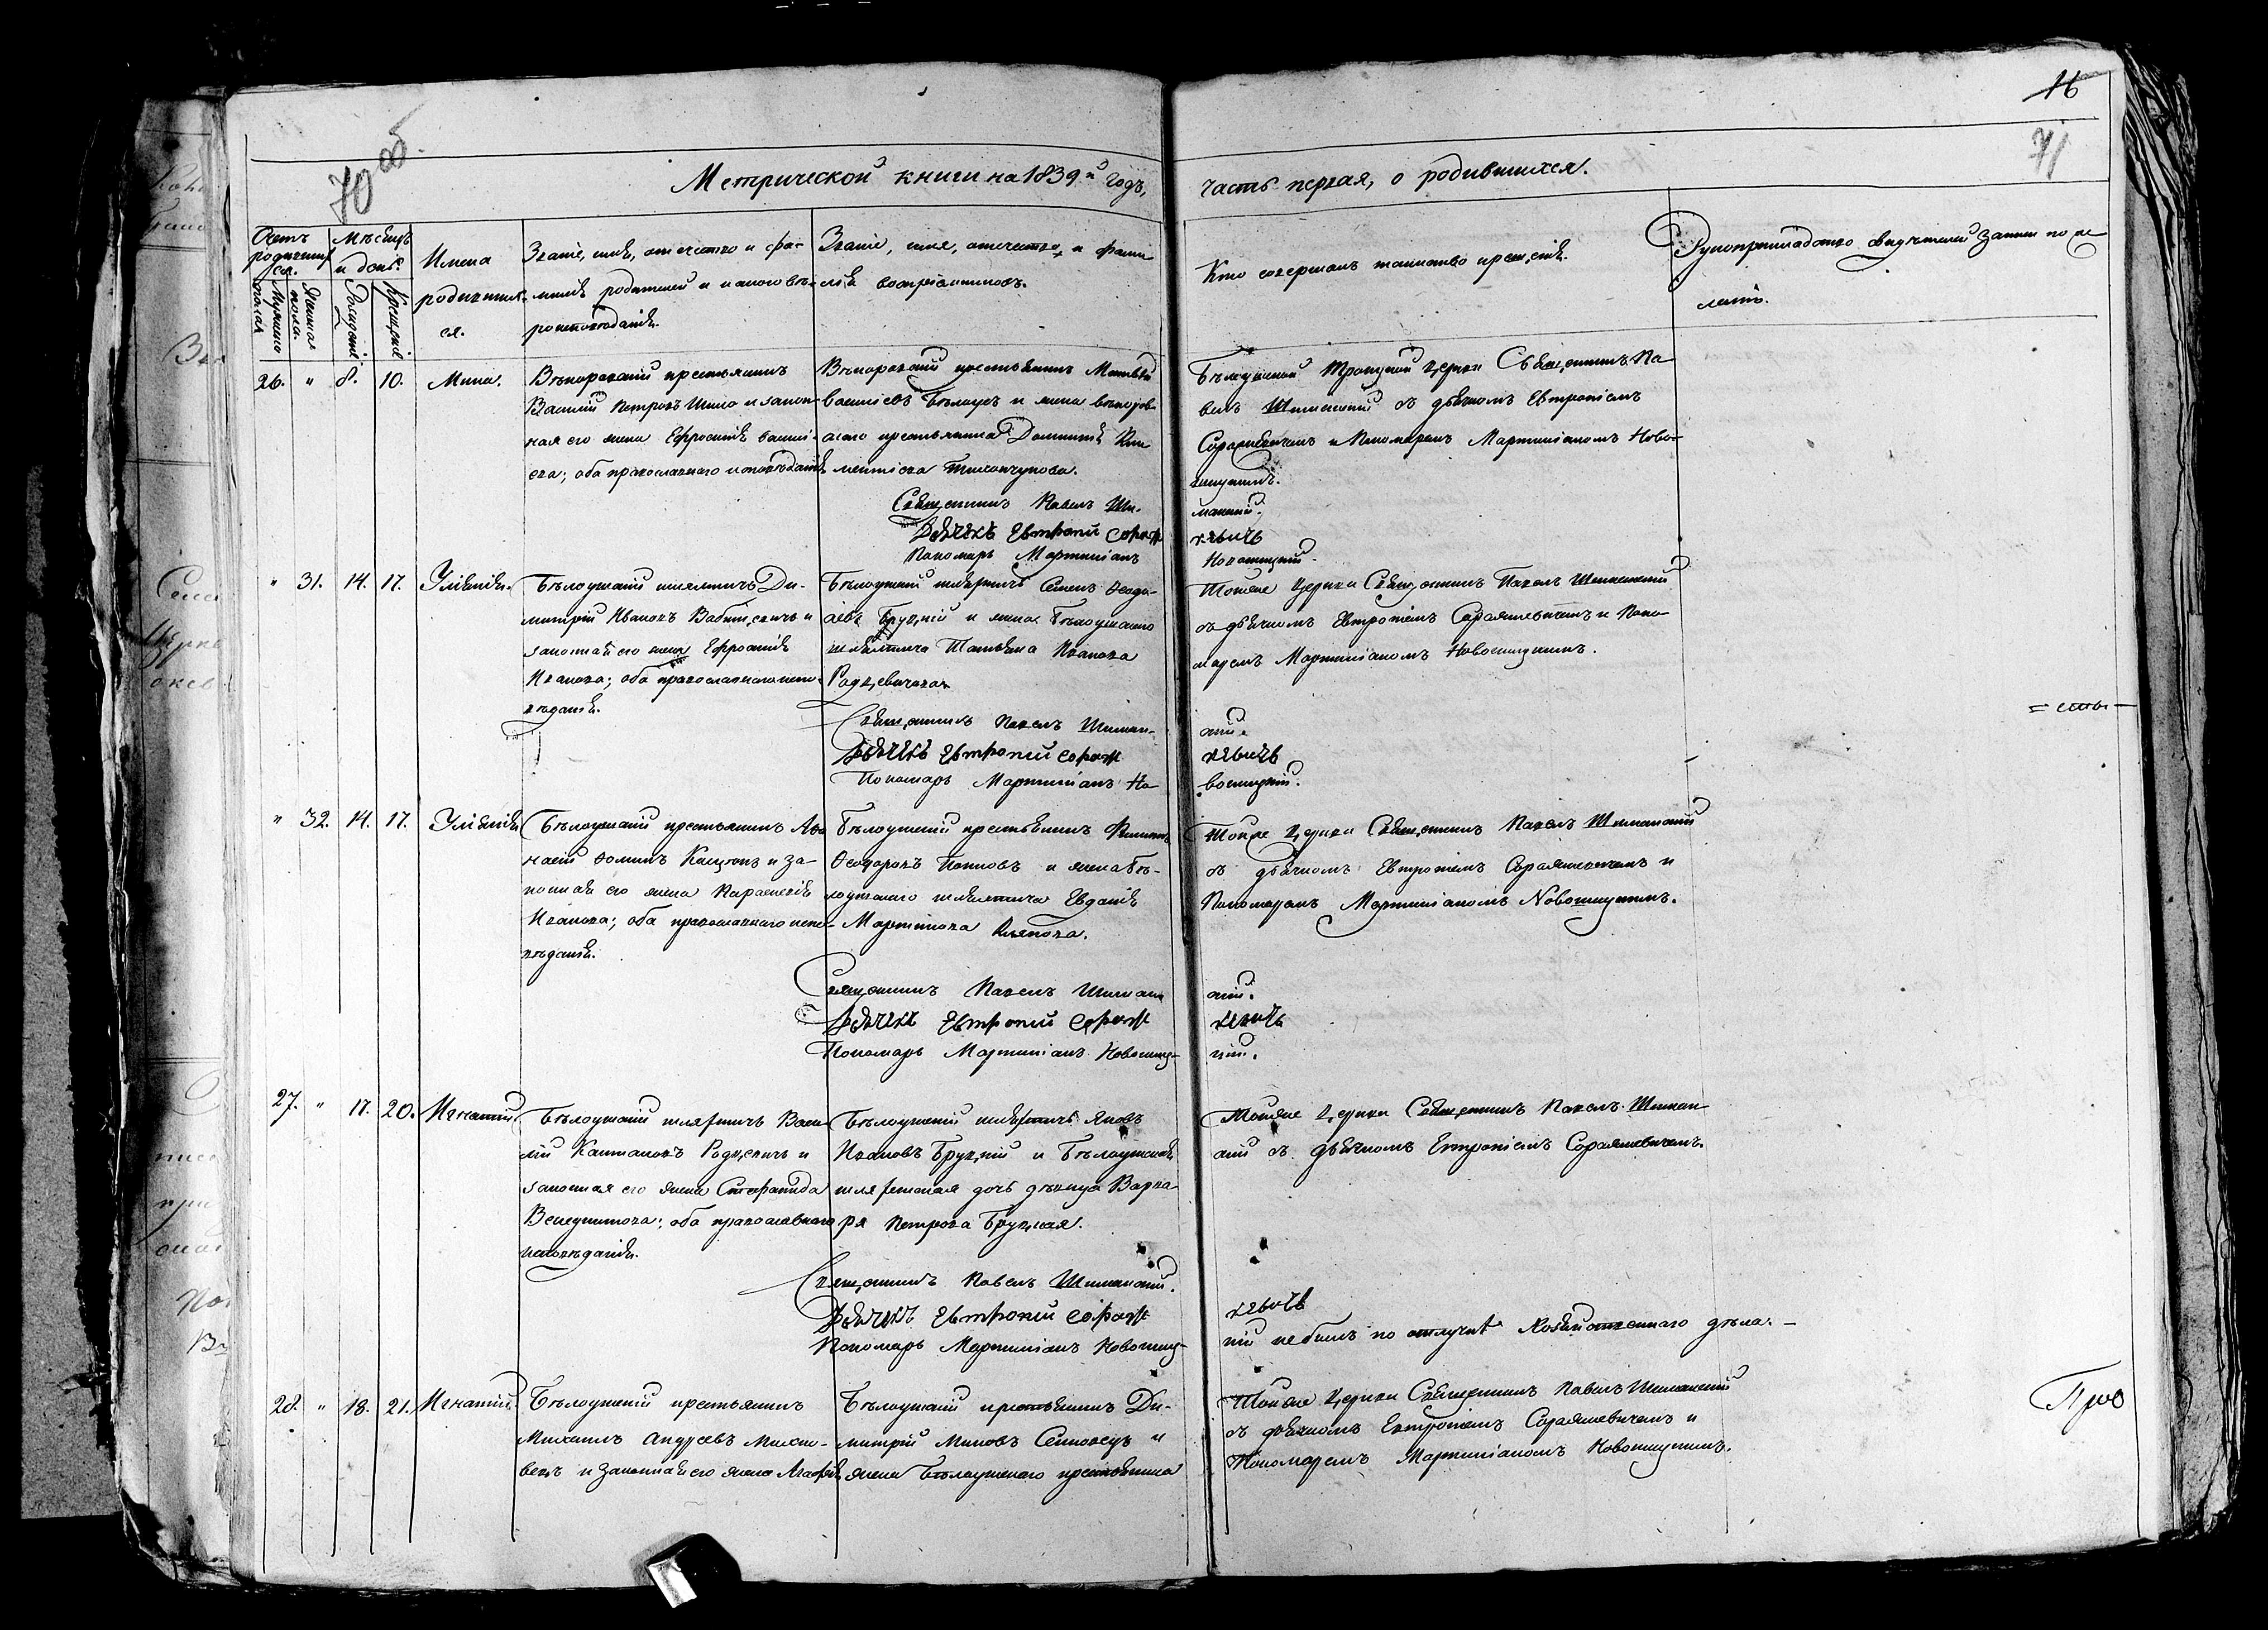 70 об.
16
71
Метрической книги на 1839й годъ,
часть первая, о родившихся.
Счетъ родившихся.
Мужеска пола
Женска пола.
Мѣсяцъ и день.
Рожденія
Крещенія
Имена родившихся.
Званіе, имя, отечество и фамилія родителей и какого вѣроисповѣданія.
Званіе, имя, отечество, и фамилія воспріемниковъ.
Кто совершалъ таинство крещенія.
Рукоприкладство свидѣтелей записи по желанію.
26. " 8. 10. Мина.
крестьянинъ
Василій Петровъ Шило и закон-
ная его жена Ефросинія Василі-
ева; оба православнаго исповѣданія
крестьянинъ Матвѣй
Василіевъ Бѣлоусъ и жена
крестьянина Домникія Кли-
ментіева
Священникъ Павелъ Ши-
Дьячекъ Евтропій Сораж
Пономарь Мартиніанъ
Бѣлоушской Троицкой Церкви Священникъ Па-
велъ Шиманскій съ дьячкомъ Евтропіемъ
Соражкевичемъ и Пономаремъ Мартиніаномъ Ново-
шицкимъ.
манскій.
кевичъ
Новошицкій.
" 31. 14. 17. Уліянія.
Бѣлоушскій шляхтичъ Ди-
митрій Ивановъ Вабищевичъ и
законная его жена Ефросинія
Иванова; оба православнаго испо-
вѣданія.
Бѣлоушскій шляхтичъ Семенъ Ѳеодо-
ровъ Бруцкій и жена Бѣлоушскаго
шляхтича Татьяна Иванова
Родцевичова.
Священникъ Павелъ Шиман-
Дьячекъ Евтропій Сораж
Пономарь Мартиніанъ Но-
Тойже Церкви Священникъ Павелъ Шиманскій
съ дьячкомъ Евтропіемъ Соражкевичемъ и Поно-
маремъ Мартиніаномъ Новошицкимъ.
скій.
кевичъ
вошицкій.
= сты -
" 32. 14. 17. Уліянія
Бѣлоушскій крестьянинъ Аѳа-
насій Ѳоминъ и за-
конная его жена Параскевія
Иванова; оба православнаго испо-
вѣданія.
Бѣлоушскій крестьянинъ Филиппъ
Ѳеодоровъ Поповъ и жена Бѣ-
лоушскаго шляхтича Евдокія
Мартинова
Священникъ Павелъ Шиман
Дьячекъ Евтропій Сораж
Пономарь Мартиніанъ Новошиц-
Тойже Церкви Священникъ Павелъ Шиманскій
съ дьячкомъ Евтропіемъ Соражкевичемъ и
Пономаремъ Мартиніаномъ Новошицкимъ.
скій.
кевичъ
кій.
27. " 17. 20. Игнатій.
Бѣлоушскій шляхтичъ Васи-
лій Родцевичъ и
законная его жена Стефанида
Венедиктова; оба православнаго
исповѣданія.
Бѣлоушскій шляхтичъ Яковъ
Ивановъ Бруцкій и Бѣлоушская
шляхетская дочь дѣвица Варва-
ра Петрова Бруцкая.
Священникъ Павелъ Шиманскій.
Дьячекъ Евтропій Сораж
Пономарь Мартиніанъ Новошиц-
Тойже Церкви Священникъ Павелъ Шиман-
скій съ дьячкомъ Евтропіемъ Соражкевичемъ.
кевичъ
кій небылъ по отлучкѣ хозяйственнаго дѣла. -
28. " 18. 21. Игнатій.
Бѣлоушскій крестьянинъ
Михаилъ Андреевъ
и законная его жена Агафія
Бѣлоушскій крестьянинъ Ди-
митрій Миновъ и
жена Бѣлоушскаго крестьянина
Тойже Церкви Священникъ Павелъ Шиманскій
съ дьячкомъ Евтропіемъ Соражкевичемъ и
Пономаремъ Мартиніаномъ Новошицкимъ.
Про